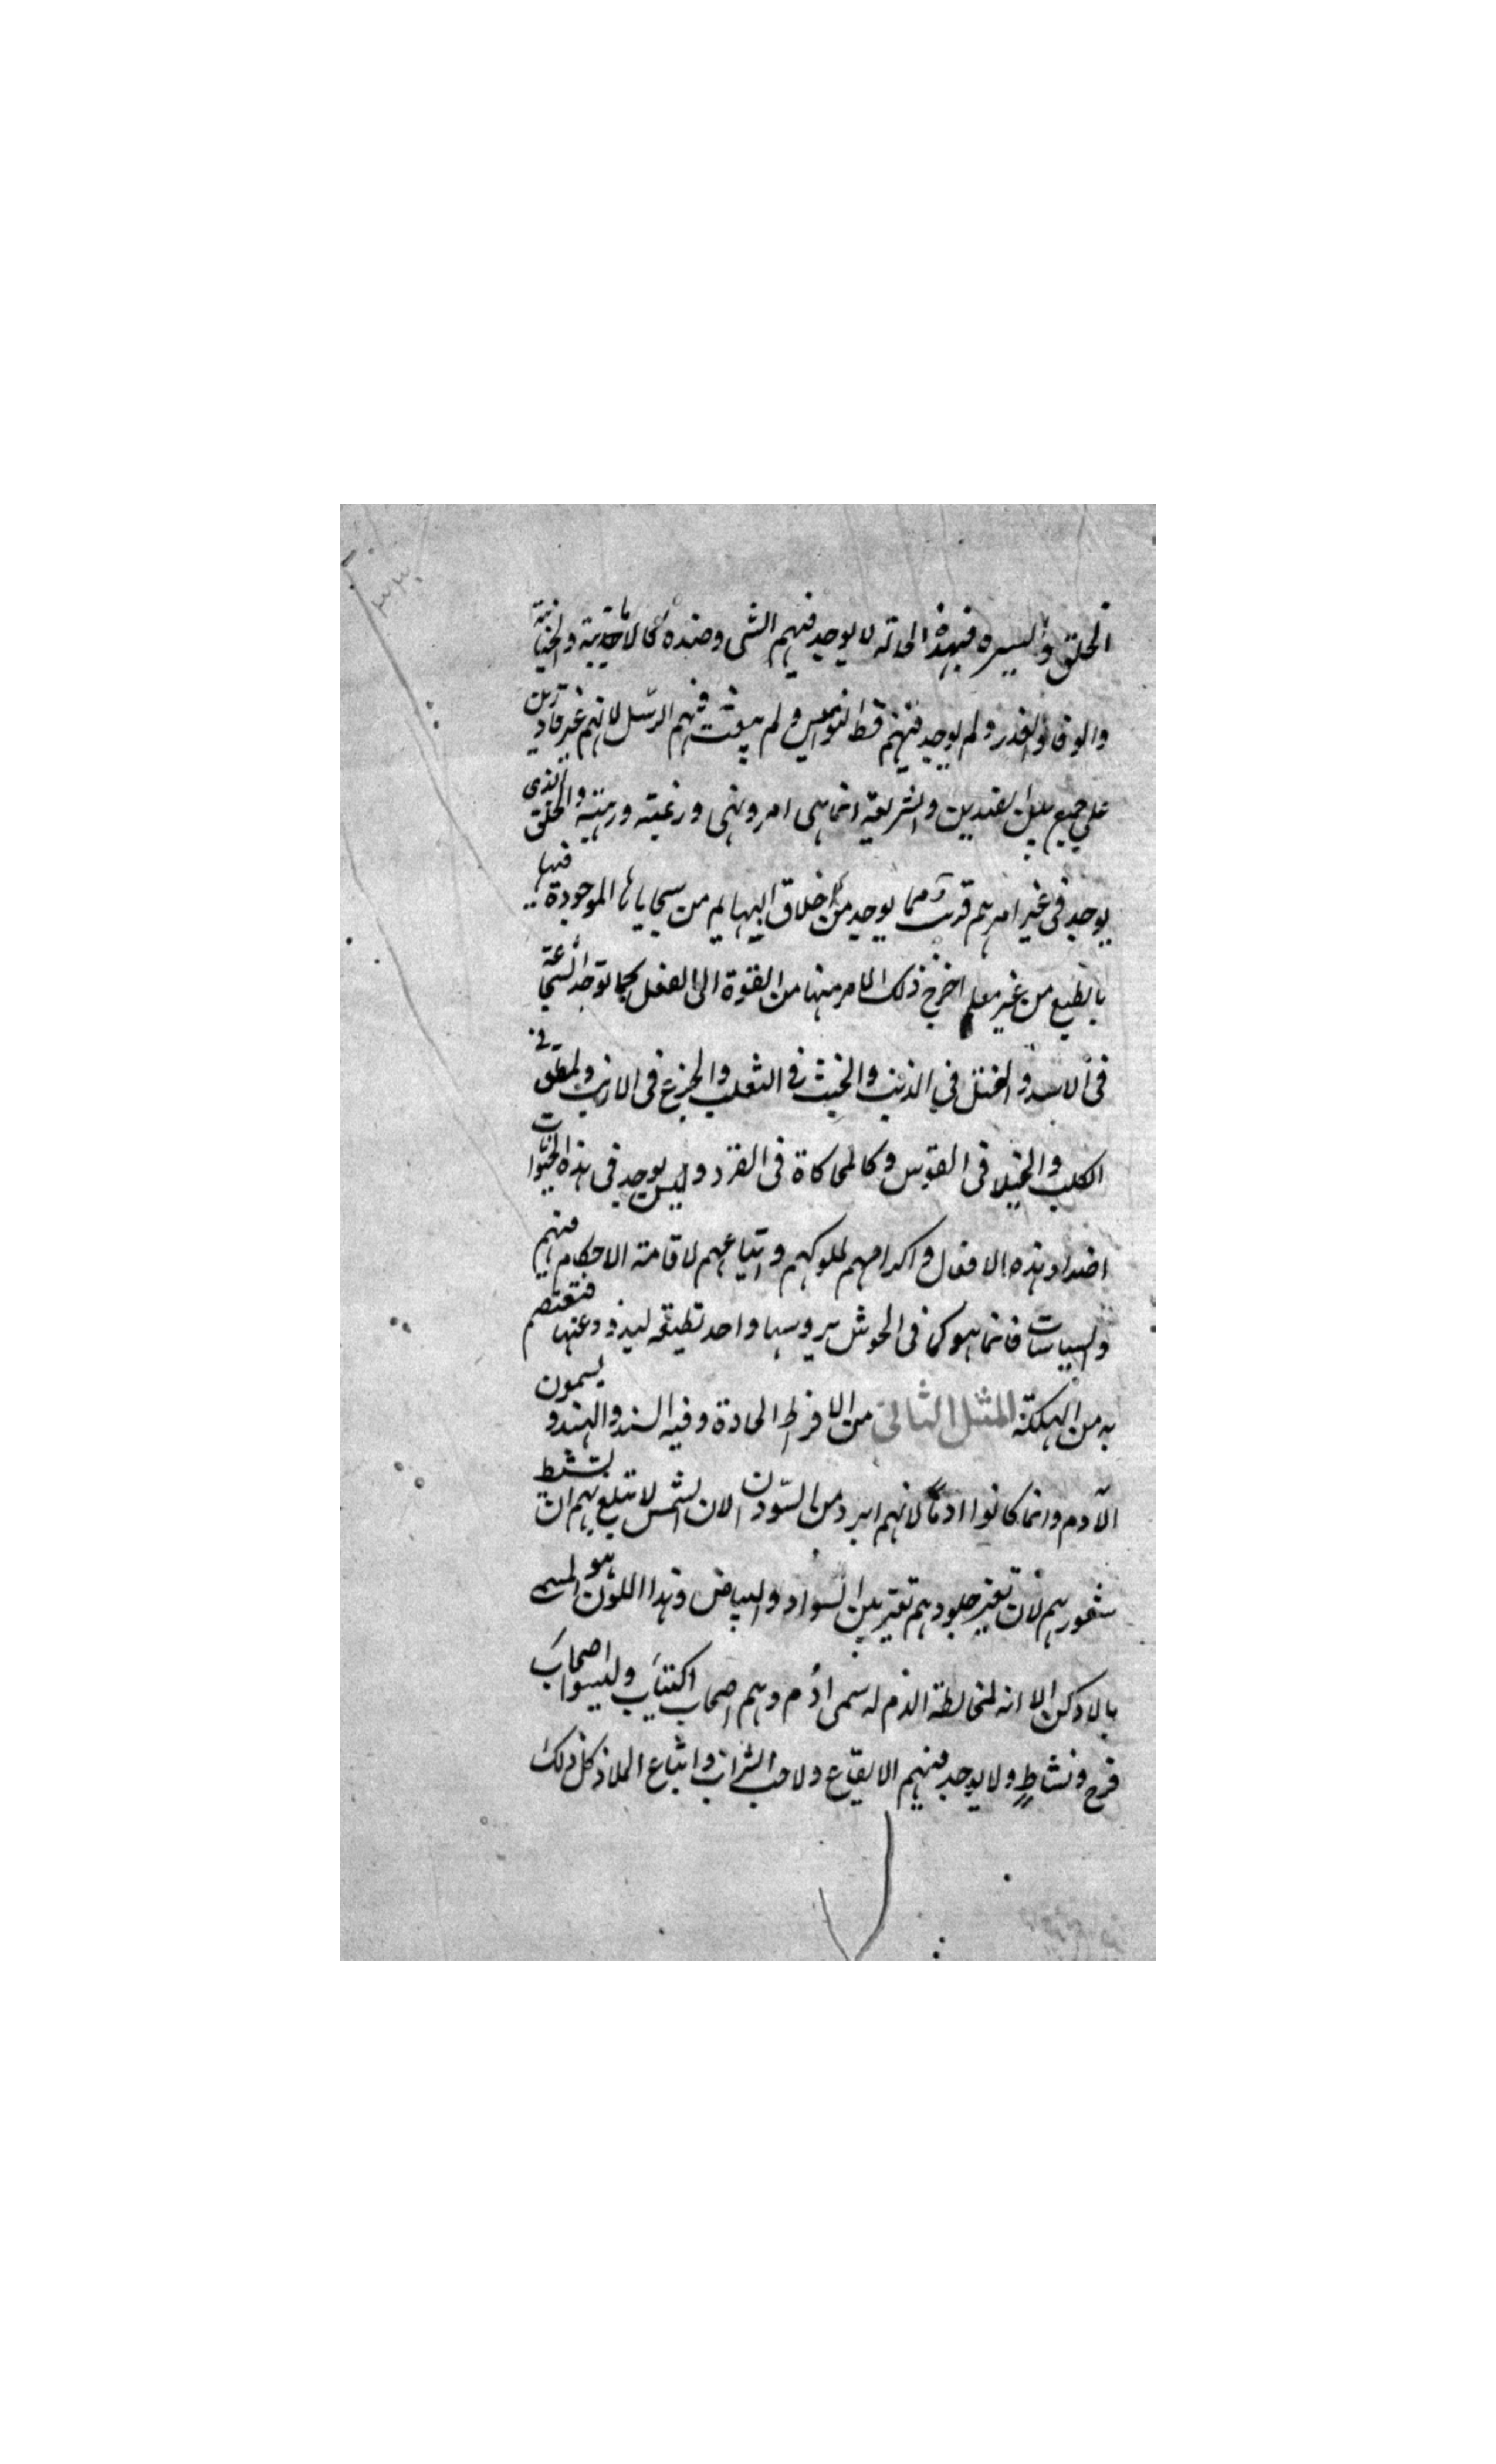 الخلق والسيره فبهذه الحالة لا يوجد فيهم الشى وضده كالامانة والخيانة
والوفا والغدر ولم يوجد فيهم قط النواميس ولم يبعث فيهم الرسل لانهم غير قادرين
على جميع بين الضدين والشريعة انما هى امر ونهى ورغبته ورهبته والخلق الذى
يوجد فى غير امرهم قرب مما يوجد من اخلاق البهايم من سجاياها الموجودة فيها
بالطبع من غير معلم اخرج ذلك الامر منها من القوة الى الفعل كما توجد الشجاعة
فى الاسد والختل فى الذئب والخبث فى الثعلب والجزع فى الارنب والملق فى
الكلب والخيلا فى الفرس وكالمحاكاة فى القرد وليس يوجد فى هذه الحيوانات
اضداد هذه الافعال واكرامهم لملوكهم واتباعهم لاقامة الاحكام فيهم
والسياسات فانما هو كما فى الحوش يروسها واحد تطيقه ليذود عنها فتعتصم
به من الهلكة المثل الثانى من الافراط الحادة وفيه السند والهند ويسمون
الآدم وانما كانوا ادمًا لانهم ابرد من السودان الا ان الشمس لا تبلغ بهم ان تشيط
شعورهم لان تغير جلودهم تغير بين السواد والبياض وهذا اللون هو المسمى
بالادكن الا انه لمخالطة الدم له سمى ادم وهم اصحاب اكتئاب وليسوا اصحاب
فرح ونشاط ولا يوجد فيهم الايقاع ولا حب الشراب واتباع الملاذ كل ذلك